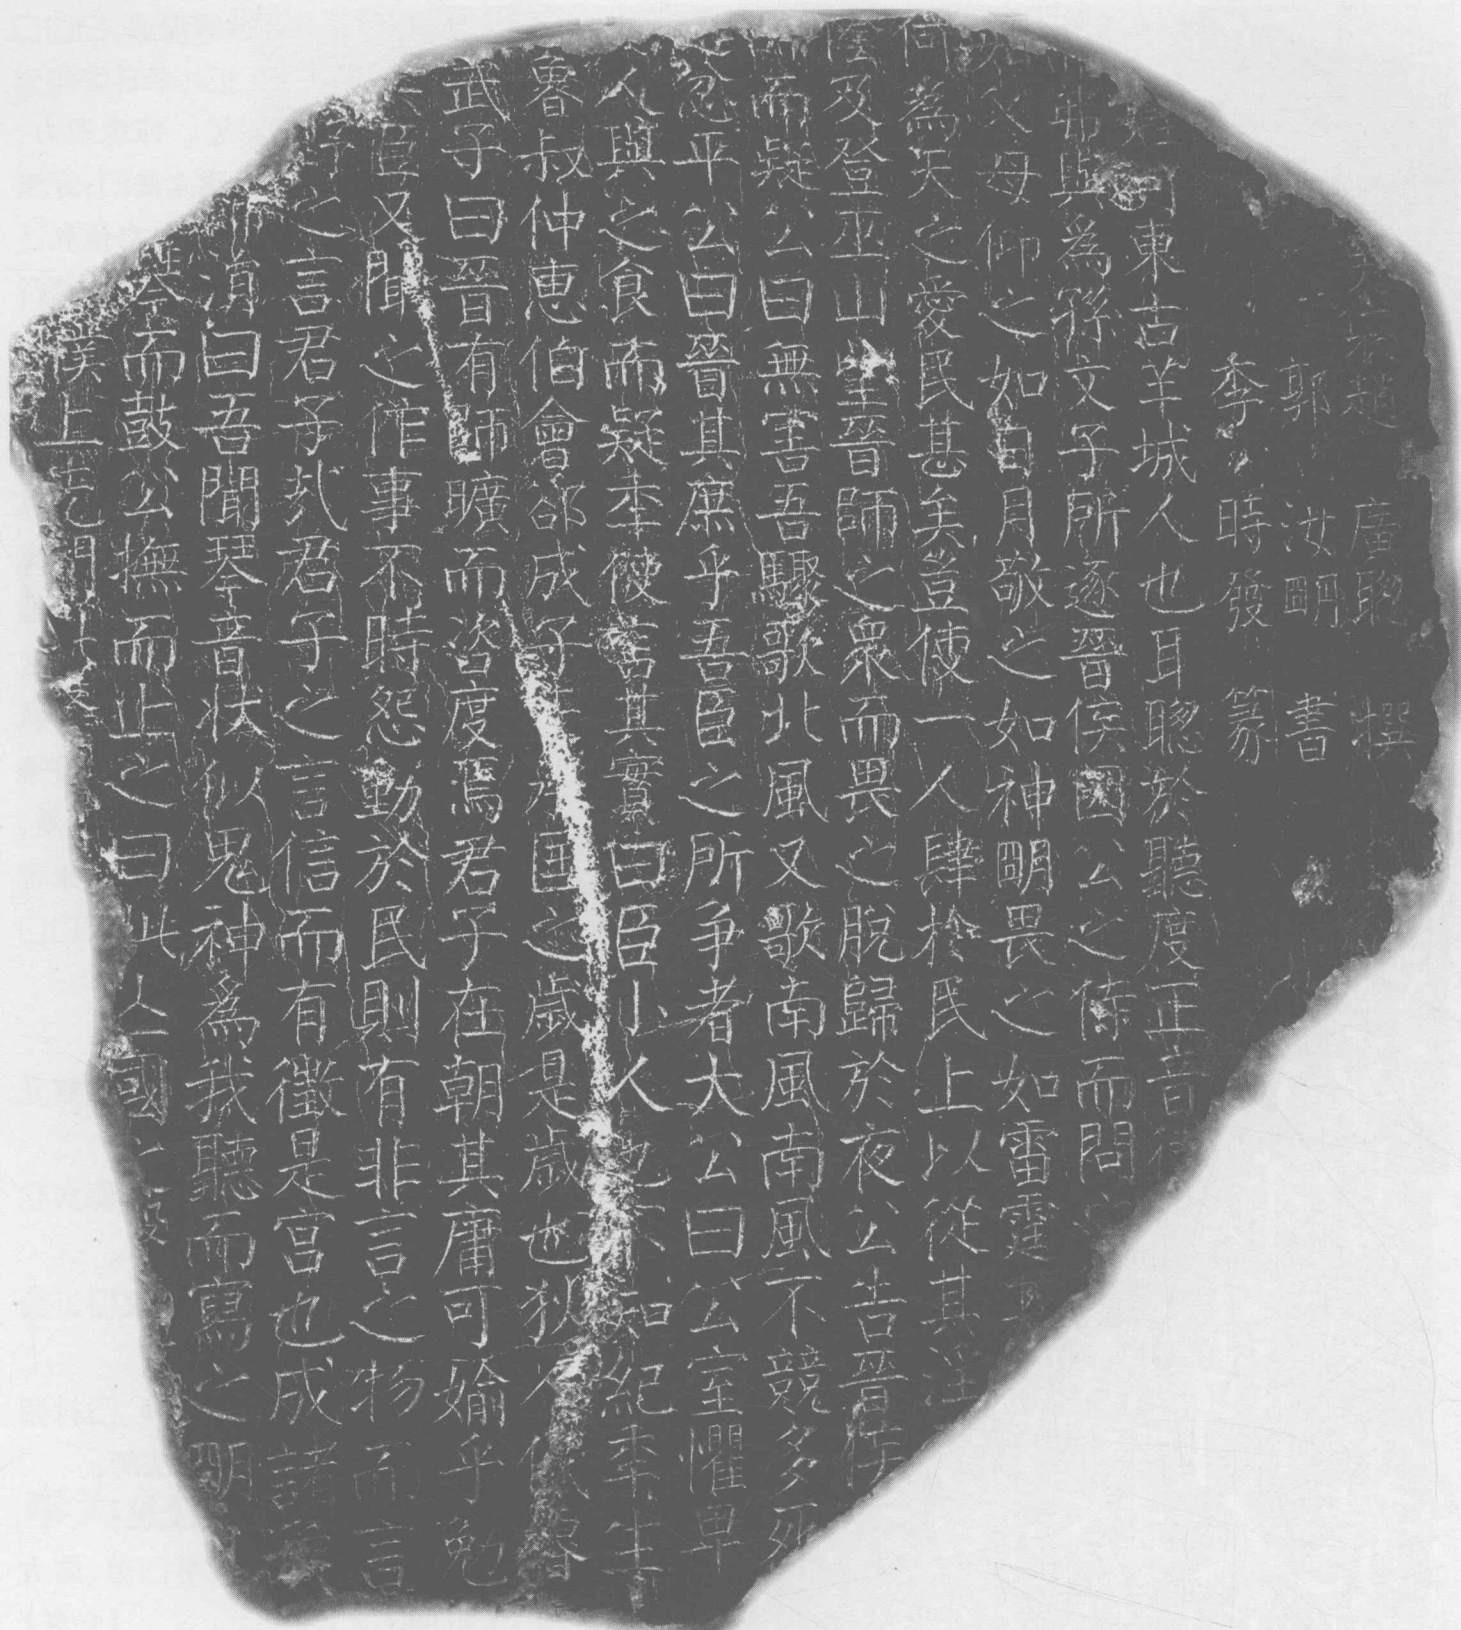 趙 廣聰 撰
郭 汝明 書
李 時發 篆
東古羊城人也耳聰於聽度正音
此與為孫文子所逐晉侯國公之侍而問
父母仰之如日月敬之如神明畏之如雷霆
為天之愛民甚矣豈使一人肆於民上以從其淫
陰及登巫山望晉師之衆而畏之脫歸於夜公告晉侯
而疑公曰無害吾驟歌北風又歌南風南風不競多死
忽平公曰晉其庶乎吾臣之所争者大公曰公室懼卑
人與之食而疑季使言其實曰臣小人也不知紀年生
魯叔仲惠伯會郤成子之歲是歲也狄
武子曰晉有師曠而咨度焉君子在朝其庸可媮乎勉
臣又聞之作事不時怨動於民則有非言之物而言
之言君子哉君子之言信而有徵是宮也成諸
涓曰吾聞琴音狀似鬼神為我聽而寫之明
琴而鼓公撫而止之曰此亾國之
上